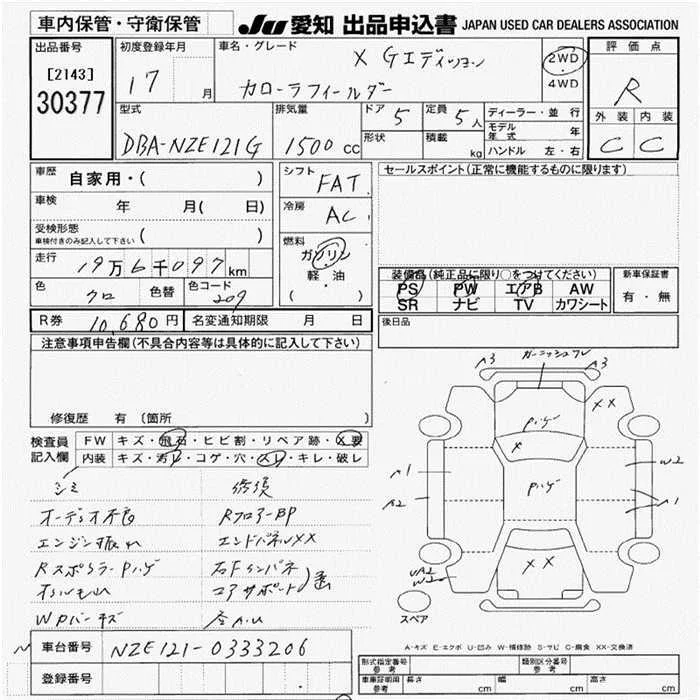 車内保管・守衛保管
JU 愛知 出品申込書 JAPAN USED CAR DEALERS ASSOCIATION
出品番号
[2143]
30377
初度登録年月
17 月
車名・グレード
X Gエディション
カローラフィールダー
2WD
4WD
評価点
R
外装 内装
C C
型式
DBA-NZE121G
排気量
1500 cc
ドア
5
定員
5 人
形状
積載
kg
ディーラー・並行
モデル年式 年
ハンドル 左・右
車歴
自家用・( )
車検
年 月( 日)
受検形態
車検付きのみ記入して下さい ( )
走行
19万6千097km
色
クロ
色替
色コード
209
シフト
FAT
冷房
AC
燃料
ガソリン
軽・油
( )
セールスポイント(正常に機能するものに限ります)
装備品(純正品に限り○をつけてください)
PS PW エアB AW
SR ナビ TV カワシート
新車保証書
有・無
R券 10,680円
名変通知期限 月 日
後日品
注意事項申告欄(不具合内容等は具体的に記入して下さい)
修復歴 有 (箇所
検査員記入欄
FW キズ・飛石・ヒビ割・リペア跡・X要
内装 キズ・汚れ・コゲ・穴・スレ・キレ・破レ
シミ
オーディオ不良
エンジン振れ
Rスポイラーハゲ
オイルもれ
修復
RフロアーBP
エンドパネルXX
右Fインパネ
コアサポート
A3
A3
XX
ハゲ
X
ハゲ
A1
A2
W2
A1
XX
UA2
スペア
A-キズ E-エクボ U-凹み W-補修跡 S-サビ C-腐食 XX-交換済
車台番号 NZE121-0333206
登録番号
形式指定番号 参考
類別区分番号 参考
車庫証明用 参考
長さ cm
幅 cm
高さ cm